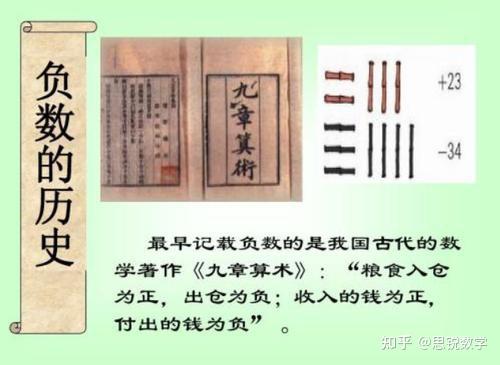 负数的历史
九章算術
+23
-34
最早记载负数的是我国古代的数
学著作《九章算术》：“粮食入仓
为正，出仓为负；收入的钱为正，
付出的钱为负” 。
知乎 @思锐数学